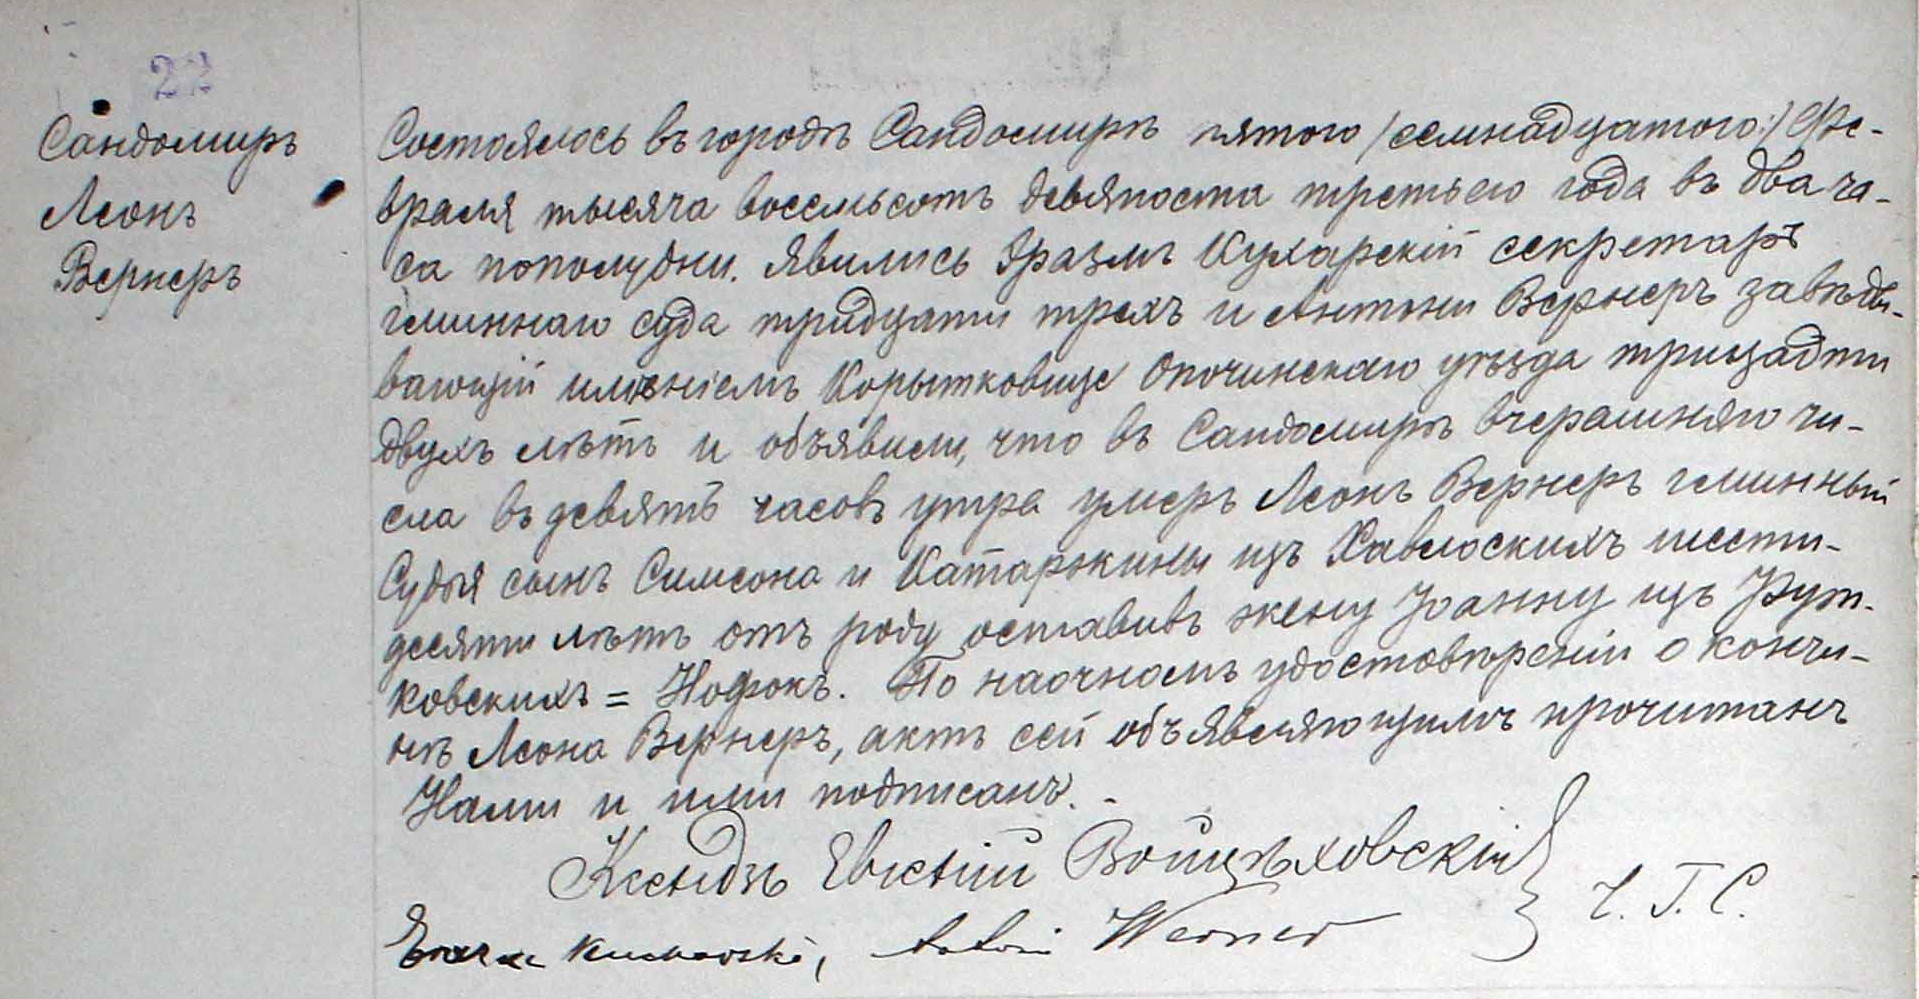 22
Сандомиръ
Леонъ
Вернеръ
Состоялось въ городѣ Сандомирѣ пятого /:семнадцатого:/ Фе-
враля тысяча восемьсотъ девяноста третьего года въ два ча-
са пополудни. Явились Эразмъ Кухарскій секретарь
гминнаго суда тридцати трехъ и Антони Вернеръ завѣды-
вающій имѣніемъ Корытковище Опочинскаго уѣзда трицадти
двухъ лѣтъ и объявили, что въ Сандомирѣ вчерашняго чи-
сла въ девять часовъ утра умеръ Леонъ Вернеръ гминный
Судья сынъ Симеона и Катаржины изъ Хавлоскихъ шести-
десяти лѣтъ отъ роду оставивъ жену Іоанну изъ Рут-
ковскихъ = Нофокъ. По наочномъ удостовѣреніи о кончи-
нѣ Леона Вернеръ, актъ сей объявляющимъ прочитанъ
Нами и ими подписанъ. -
Ксендзъ Евгеній Войцѣховскій
Ч. Г. С.
Kucharski, Antoni Werner